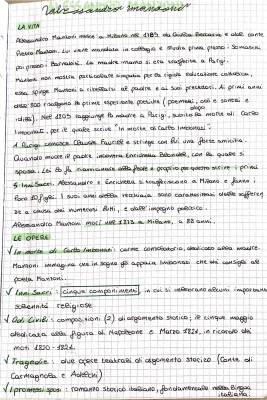 Alessandro Manzoni
LA VITA
Alessandro Manzoni nasce a Milano nel 1785 da Giulia Beccaria e dal conte
Pietro Manzoni. Lui viene mandato in collegio e studia prima presso i Somaschi
poi presso i Barnabiti. La madre intanto si era trasferita a Parigi.
Manzoni non mostra particolare simpatia per la rigida educazione cattolica,
essa spinge Manzoni a ribellarsi al padre e ai suoi precettori. Ai primi anni
dell' 800 risalgono le prime esperienze poetiche (poemetti, odi e sonetti e
idilli). Nel 1805 raggiunge la madre a Parigi, subito dopo la morte di Carlo
Imbonati, per il quale scrive "In morte di Carlo Imbonati".
A Parigi conosce Claude Fauriel e stringe con lui una forte amicizia.
Quando muore il padre incontra Enrichetta Blondel, con la quale si
sposa. Lei lo fa riavvicinare alla fede e proprio per questo scrive i primi
5 Inni Sacri. Alessandro e Enrichetta si trasferiscono a Milano e fanno i
loro 10 figli. I suoi anni della vecchiaia sono caratterizzati dalle sofferen
ze a causa dei numerosi lutti, e dall' impegno politico.
Alessandro Manzoni morì nel 1873 a Milano, a 88 anni.
LE OPERE
✓ In morte di Carlo Imbonati: carme consolatorio dedicato alla madre.
Manzoni immagina che in sogno gli appaia Imbonati che dia consigli al
poeta Manzoni.
✓ Inni Sacri: cinque componimenti, in cui si celebrano alcune importanti
solennità religiose
✓ Odi Civili: composizioni (2) di argomento storico; Il cinque maggio
dedicata alla figura di Napoleone e Marzo 1821, in ricordo dei
moti 1820-1821.
✓ Tragedie: due opere teatrali di argomento storico (Conte di
Carmagnola e Adelchi)
✓ I promessi sposi: romanzo storico italiano, fondamentale nella lingua
italiana.